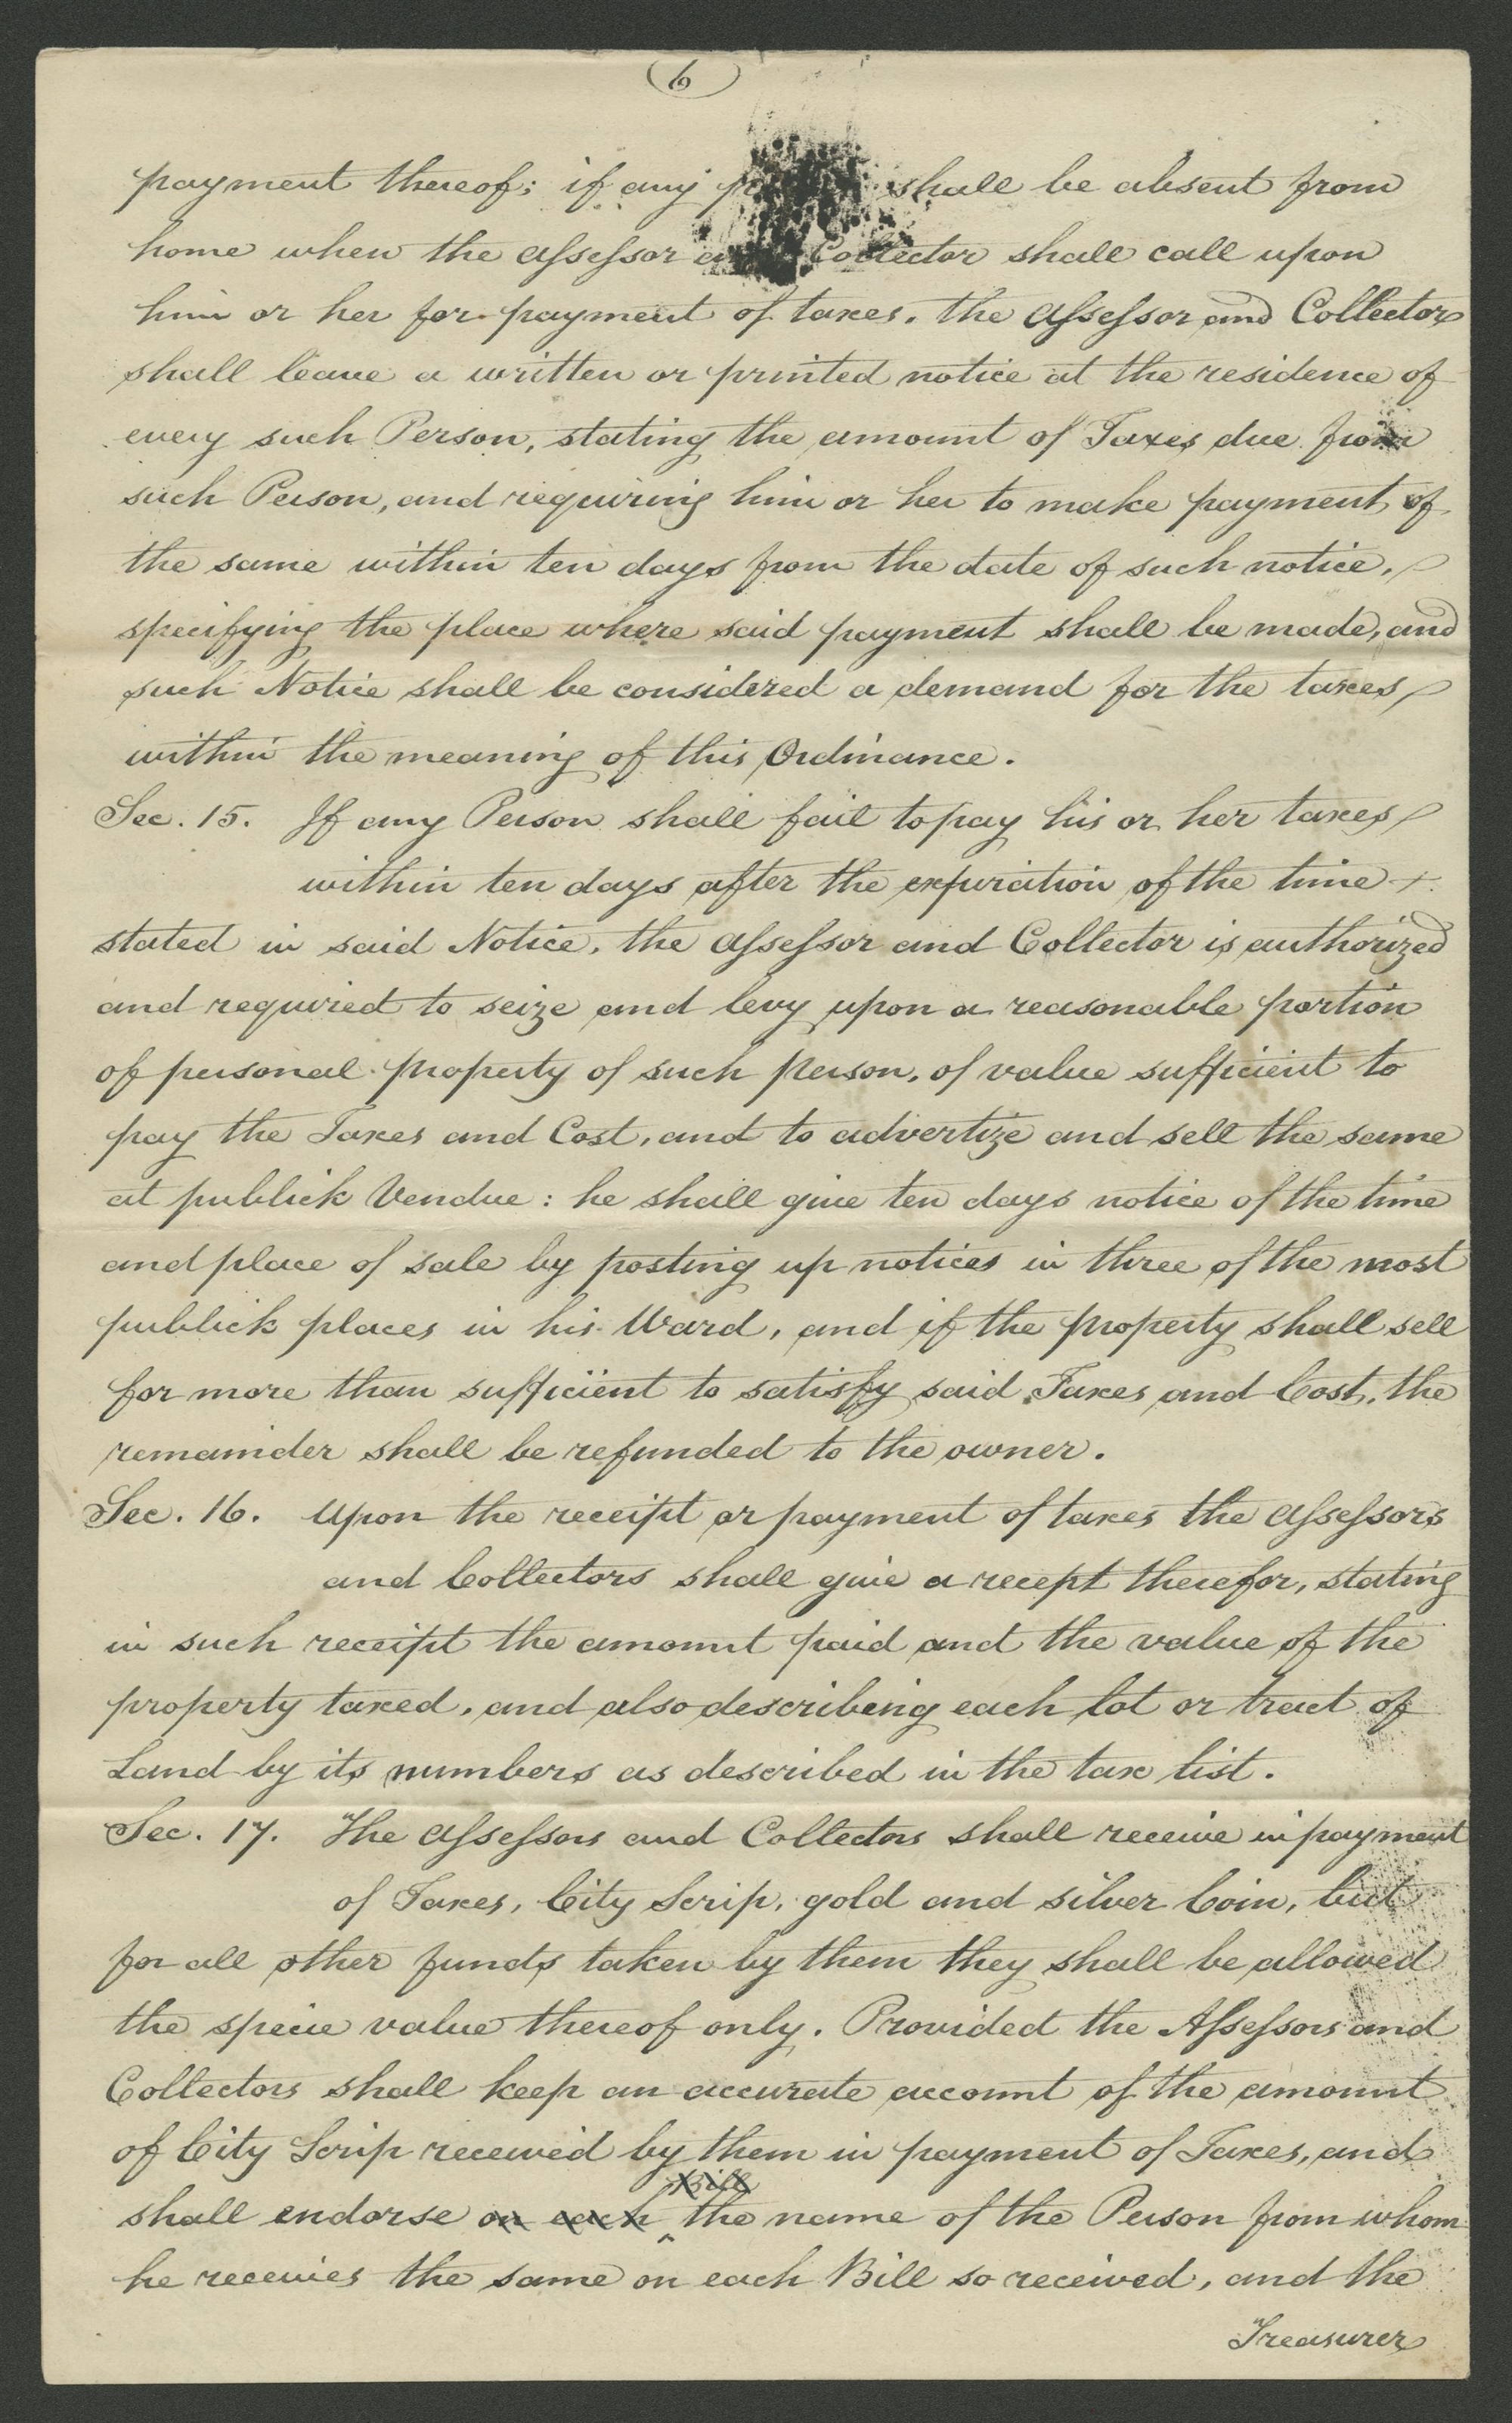 6
payment thereof; if any shall be absent from
home when the Assessor Collector shall call upon
him or her for payment of taxes, the Assessor and Collector
shall leave a written or printed notice at the residence of
every such Person, stating the amount of Taxes due from
such Person, and requiring him or her to make payment of
the same within ten days from the date of such notice,
specifying the place where said payment shall be made, and
such Notice shall be considered a demand for the taxes
within the meaning of this Ordinance.
Sec. 15. If any Person shall fail to pay his or her taxes
within ten days after the expiration of the time
stated in said Notice, the Assessor and Collector is authorized
and required to seize and levy upon a reasonable portion
of personal property of such person, of value sufficient to
pay the Taxes and Cost, and to advertize and sell the same
at publick Vendue: he shall give ten days notice of the time
and place of sale by posting up notices in three of the most
publick places in his Ward, and if the property shall sell
for more than sufficient to satisfy said Taxes and Cost, the
remainder shall be refunded to the owner.
Sec. 16. Upon the receipt or payment of taxes the Assessors
and Collectors shall give a recept therefor, stating
in such receipt the amount paid and the value of the
property taxed, and also describing each lot or tract of
Land by its numbers as described in the tax list.
Sec. 17. The Assessors and Collectors shall receive in payment
of Taxes, City Scrip, gold and silver Coin, but
for all other funds taken by them they shall be allowed
the specie value thereof only. Provided the Assessors and
Collectors shall keep an accurate account of the amount
of City Scrip received by them in payment of Taxes, and
Bill
shall endorse on each the name of the Person from whom
he receives the same on each Bill so received, and the
Treasurer